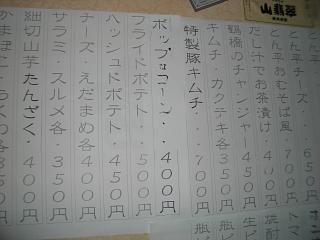 山翡翠
とん平チーズ・・650円
とん平おむそば風・700円
だし汁でお茶漬け・400円
鶴橋のチャンジャー450円
キムチ・カクテキ各350円
特製豚キムチ・・700円
ポップコーン・・400円
フライドポテト・・500円
ハッシュドポテト・450円
チーズ・えだまめ各400円
サラミ・スルメ各・350円
細切山芋たんざく・400円
かまぼこ・ちくわ各350円
焼酎
生ビ
瓶ビ
トマ